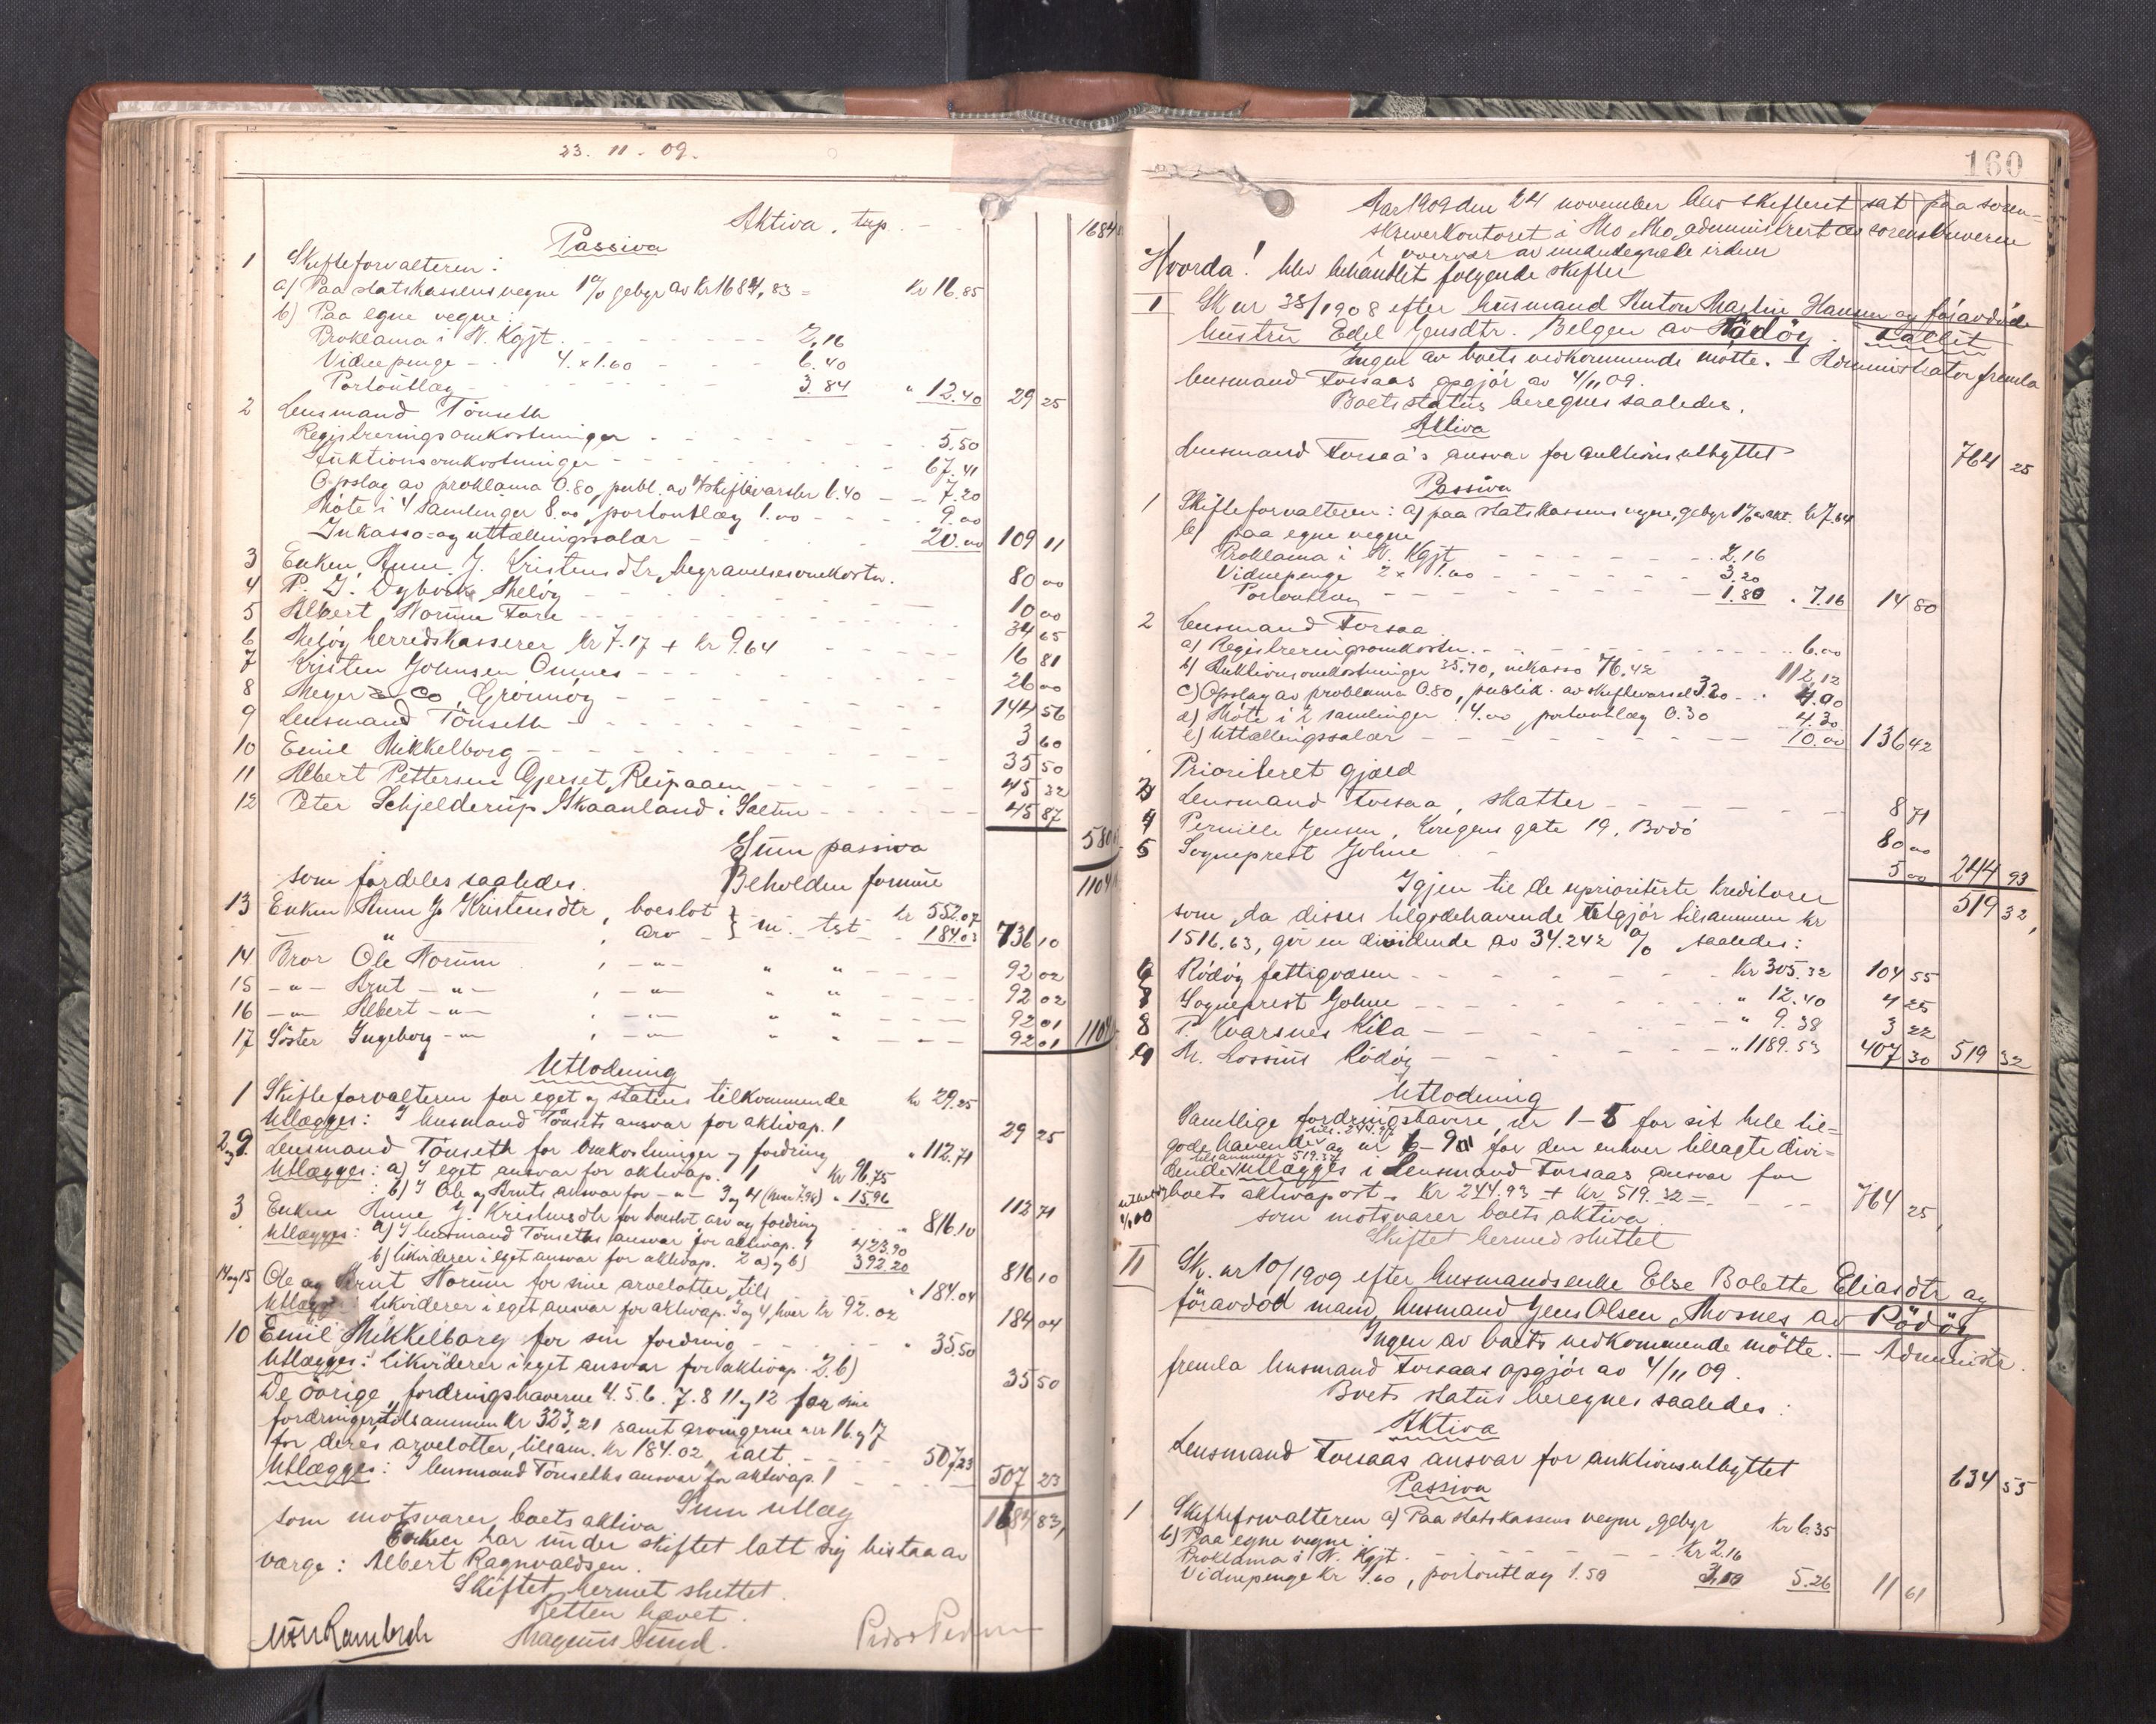 23. 11 - 09.
Aktiva, trp. 1684
Passiva
1 Skifteforvalteren:
a) Paa statskassens vegne 1% gebyr av kr 1684,83 = kr 16.85
b) Paa egne vegne:
Proklama i N. Kgjt. 2,16
Vidnepenge 4. x 1.60 6.40
Portoutlæg 3.84 " 12.40 29 25
2 Lensmand Tönseth
Registreringsomkostninger 5.50
Auktionsomkostninger 67.41
Opslag av proklama 0.80, publ. av 4 skiftevarsler 6.40 7.20
Möte i 4 samlinger 8.00, portoutlæg 1.00 9.00
Inkasso- og uttællingssalær 20.00 109 11
3 Enken Anne J. Kristensdtr, begravelsesomkostn. 80 00
4 P. J. Dybvik, Melöy 10 00
5 Albert Norum Fore 34 65
6 Melöy herredskasserer kr 7.17 + kr 9.64 16 81
7 Kristen Johnsen Omnes 26 00
8 Meyer & Co, Grönnöy 144 56
9 Lensmand Tönseth 3 60
10 Emil Mikkelborg 35 50
11 Albert Pettersen Gjerset, Reipaaen 45 32
12 Peter Schjelderup, Skaanland i Salten 45 87
Sum passiva 580
Beholden formue 1104
som fordeles saaledes.
13 Enken Anne J. Kristensdtr, boeslot kr 552.07
, arv m. tst 184.03 736 10
14 Bror Ole Norum , -"- " " 92 02
15 -"- Knut -"- , -"- " " 92 02
16 -"- Albert -"- , -"- " " 92 01
17 Söster Ingeborg -"- , -"- " " 92 01 1104
Utlodning
1 Skifteforvalteren for eget og statens tilkommende kr 29.25
Utlægges: I lensmand Tönseths ansvar for aktivap. 1 29 25
2 og 9. Lensmand Tönseth for omkostninger og fordring " 112.71
Utlægges: a) I eget ansvar for aktivap. 1 kr 96.75
: b) I Ole og Knuts ansvar for -"- 3 og 4 (hver 7.98) " 15.96 112 71
3 Enken Anne J. Kristensdtr for boeslot, arv og fordring 816.10
Utlægges: a) I lensmand Tönseths ansvar for aktivap. 1 423.90
b) likviderer i eget ansvar for aktivap. 2 a) og b) 392.20 816 10
14 og 15 Ole og Knut Norum for sine arvelotter, tils " 184.04
Utlægg: likviderer i eget ansvar for aktivap. 3 og 4, hver kr 92.02 184 04
10 Emil Mikkelborg for sin fordring " 35.50
Utlægges: likviderer i eget ansvar for aktivap. 2.b) 35 50
De övrige fordringshaverne 4. 5. 6. 7. 8 11 og 12 for sine
fordringer tilsammen kr 323,21 samt arvingerne nr 16 og 17
for deres arvelotter, tilsam. kr 184.02, ialt 507,23
Utlægges: I lensmand Tönseths ansvar for aktivap. 1 507 23
Sum utlæg 1684 83,
som motsvarer boets aktiva
Enken har under skiftet latt sig bistaa av
værge: Albert Ragnvaldsen.
Skiftet hermet sluttet.
Retten hævet.
Magnus Sund. Peder Pedersen
160
Aar 1909 den 24 november blev skifteret sat paa soren-
skriverkontoret i Mo, Mo, administrert av sorenskriveren
i overvær av undertegnede vidner
Hvorda! blev behandlet følgende skifter
I Sk nr 38/1908 efter husmand Anton Martin Hansen og föravdöde
hustru Edel Jensdtr. Belgen av Rödöy. Fallit
Ingen av boets vedkommende mötte. - Administrator fremla
lensmand Forsaas opgjör av 4/11 09.
Boets status beregnes saaledes.
Aktiva
Lensmand Forsaa's ansvar for auktionsutbyttet 764 25
Passiva
1 Skifteforvalteren: a) paa statskassens vegne, gebyr 1% av akt. kr 7.64
b) paa egne vegne
Proklama i N. Kgjt 2.16
Vidnepenge 2 x 1.60 3.20
Portoutlæg 1.80 " 7.16 14 80
2 Lensmand Forsaa
a) Registreringsomkostn. 6.00
b) Auktionsomkostninger 35.70, inkasso 76.42 112,12
c) Opslag av proklama 0.80, publik. av skiftevarsel 3.20 4.00
d) Möte i 2 samlinger 4.00, portoutlæg 0.30 4.30
e) Uttællingssalær 10.00 136 42
Prioriteret gjæld
3 Lensmand Forsaa, skatter 8 71
4 Pernille Jensen, Kongens gate 19, Bodö 80 00
5 Sogneprest Johne 5 00 244 93
Igjen til de uprioriterte kreditorer 519 32,
som, da disses tilgodehavende utgjör tilsammen kr
1516,63, gir en dividende av 34.242 % saaledes:
6 Rödöy fattigvæsen kr 305.32 104 55
Sogneprest Johne " 12.40 4 25
8 T. Kvarsnes Kila " 9.38 3 22
9 M. Lossius Rödöy " 1189.53 407 30 519 32
Utlodning
Samtlige fordringshavere, nr 1-5 for sit hele til-
godehavende tils. 244.93 og nr 6-9 for den enhver tillagte divi-
dende tilsammen 519.32 utlægges i Lensmand Forsaas ansvar for
boets aktivapost. Kr 244.93 + kr 519.32 = 764 25,
som motsvarer boets aktiva
Skiftet hermed sluttet
II Sk. nr 10/1909 efter husmandsenke Else Bolette Eliasdtr og
föravdöd mand, husmand Jens Olsen, Mosnes av Rödöy
Ingen av boets vedkommende mötte. - Administr.
fremla lensmand Forsaas opgjör av 4/11 09.
Boets status beregnes saaledes:
Aktiva
Lensmand Forsaas ansvar for auktionsutbyttet 634 55
Passiva
1 Skifteforvalteren a) Paa statskassens vegne, gebyr kr 6.35
b) Paa egne vegne:
Proklama i N. Kgjt. kr 2.16
Vidnepenge kr 1.60, portoutlæg 1.50 3,10 5.26 11 61